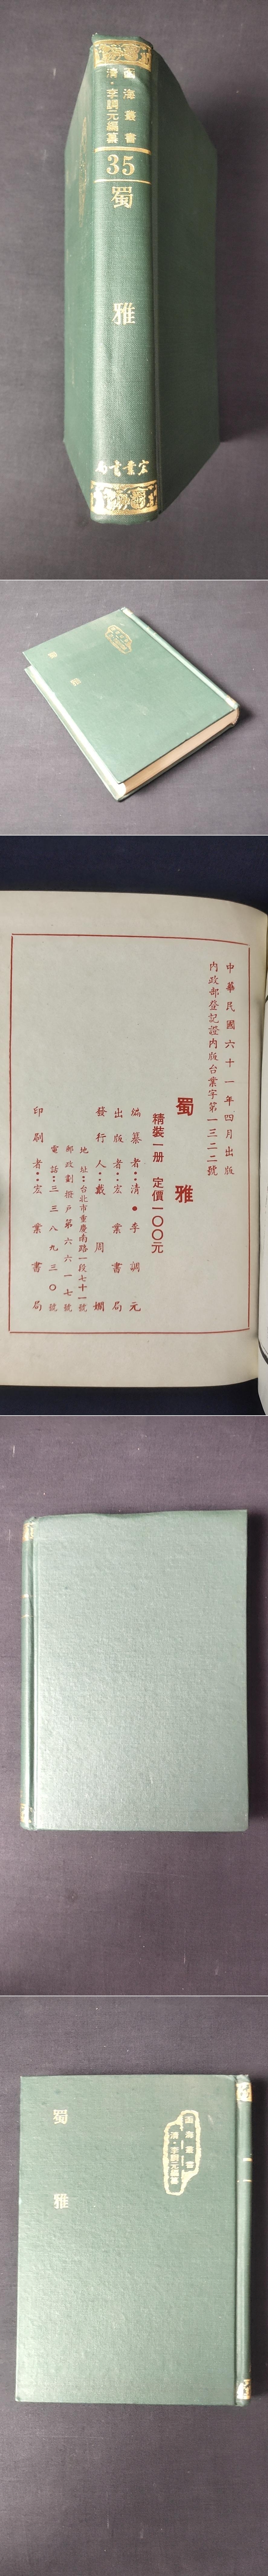 函海叢書
清·李調元編纂
35
蜀雅
宏業書局
中華民國六十一年四月出版
內政部登記證內版台業字第一三二二號
蜀雅
精裝一册 定價一〇〇元
編纂者：清●李調元
出版者：宏業書局
發行人：戴周斕
地址：台北市重慶南路一段七十一號
郵政劃撥戶第六六一七號
電話：三三八九三〇號
印刷者：宏業書局
函海叢書
清·李調元編纂
蜀雅